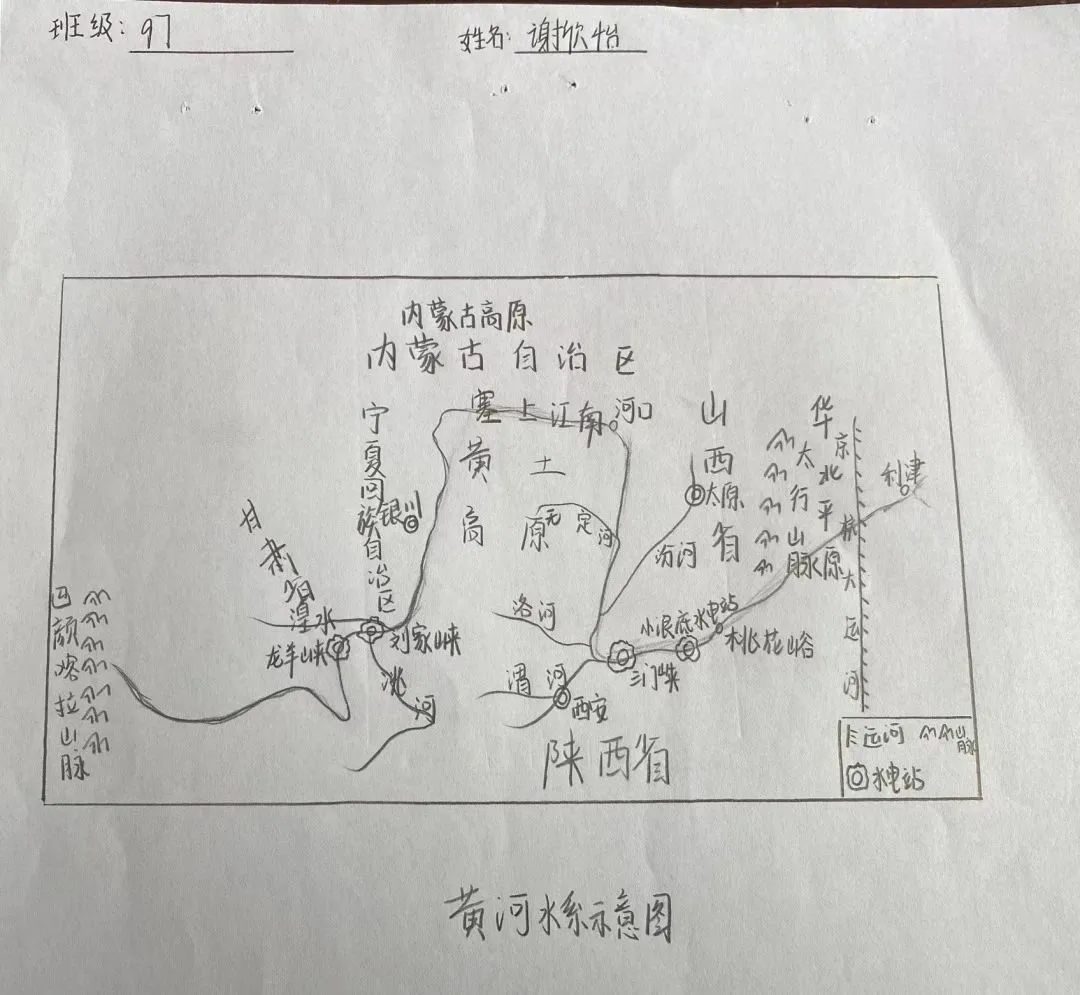 班级: 97
姓名: 谢欣怡
内蒙古高原
内蒙古自治区
塞上江南
河口
宁夏回族自治区
银川
黄土高原
无定河
山西省
太原
汾河
太行山脉
华北平原
京杭大运河
利津
甘肃省
湟水
龙羊峡
刘家峡
洮河
洛河
渭河
西安
三门峡
小浪底水电站
桃花峪
陕西省
巴颜喀拉山脉
运河 山脉
水电站
黄河水系示意图